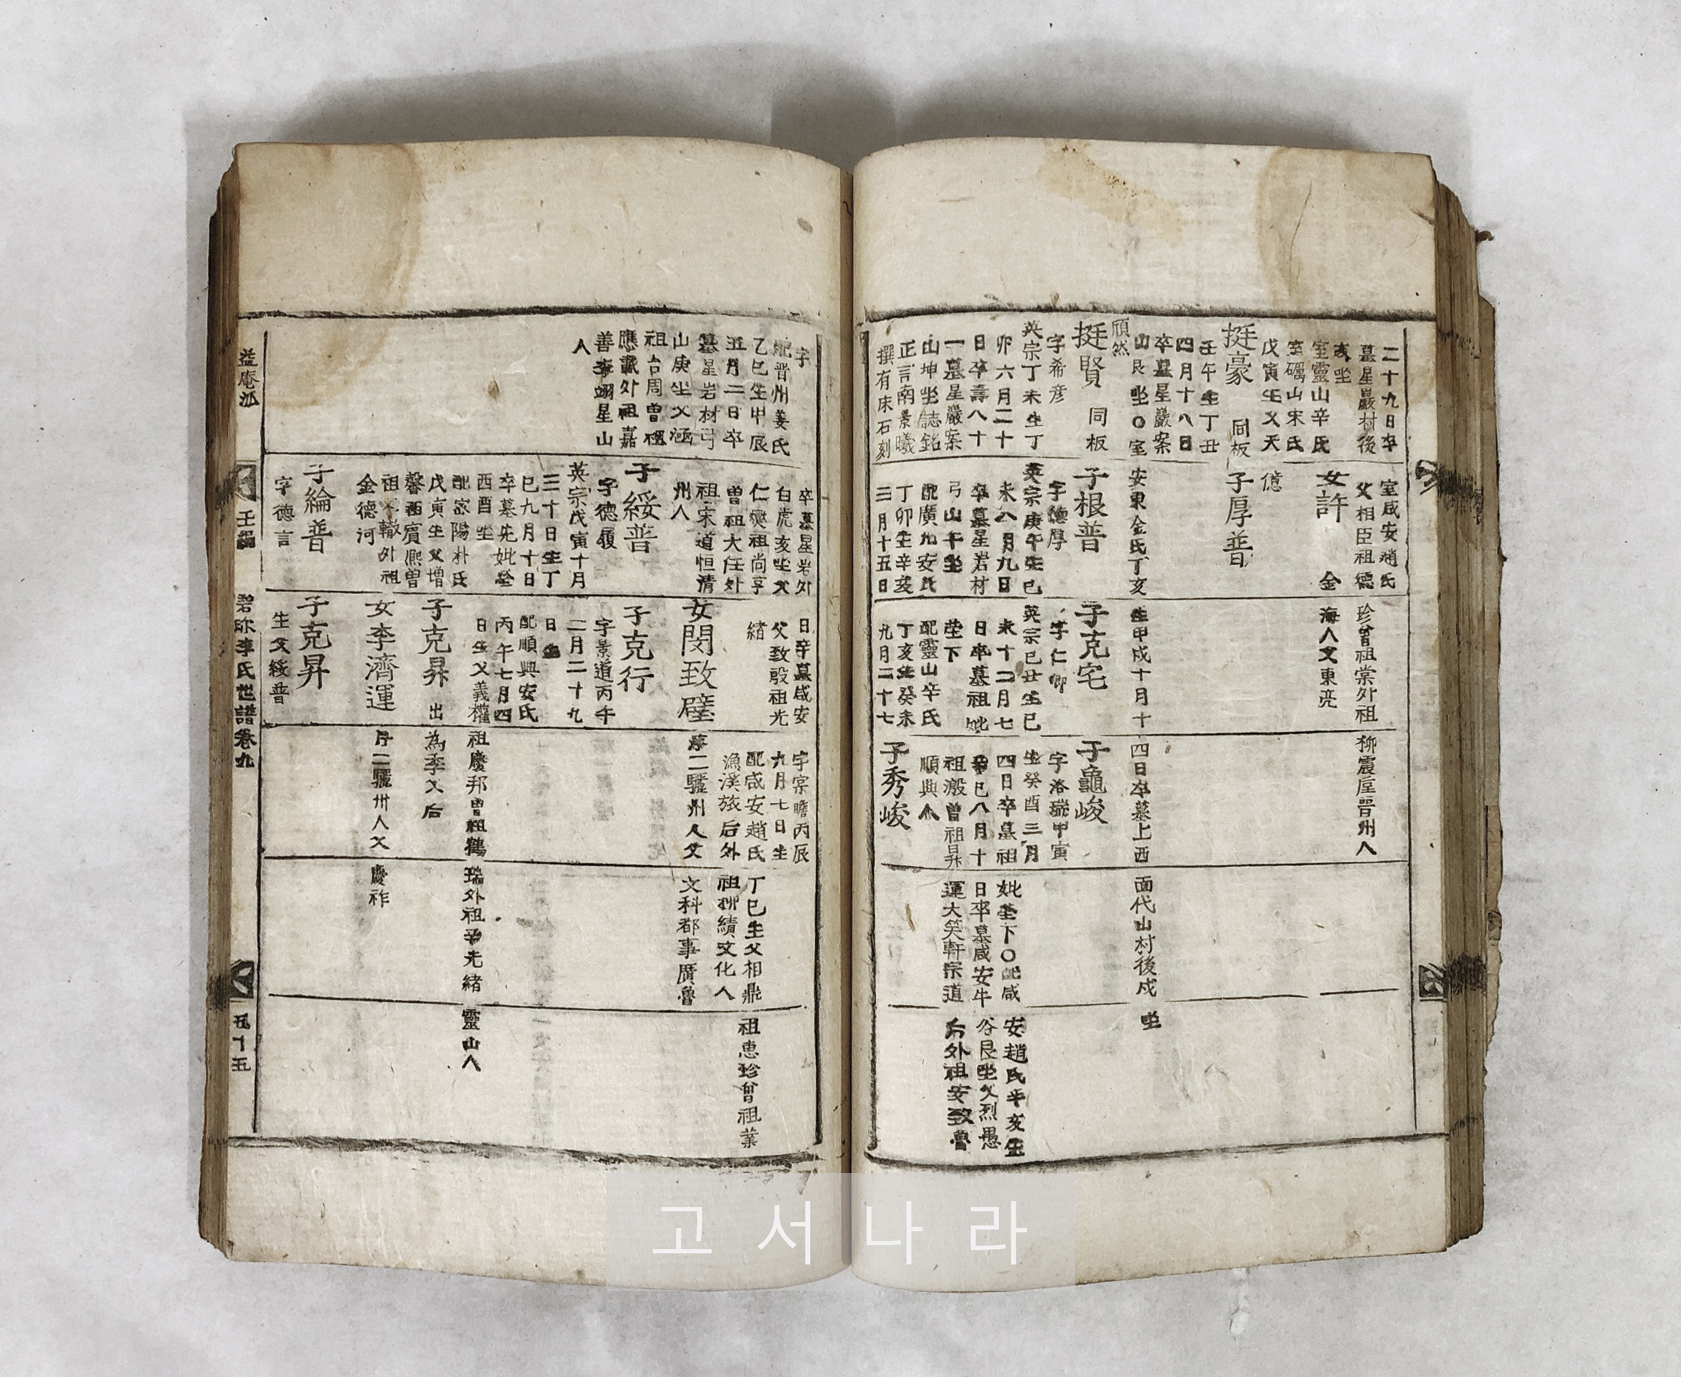 二十九日卒
墓星巖村後
亥坐
室靈山辛氏
室礪山宋氏
戊寅生父天
挺豪 同板
壬午生丁丑
四月十八日
卒墓星巖案
山艮坐〇室
頎然
挺賢 同板
字希彦
英宗丁未生丁
卯六月二十
日卒壽八十
一墓星巖案
山坤坐誌銘
正言南景曦
撰有床石刻
室咸安趙氏
父相臣祖德
女許 金
億
子厚普
安東金氏丁亥
子根普
字德厚
英宗庚午生己
未八月九日
卒墓星岩材
弓山午坐
配廣九安氏
丁卯生辛亥
三月十五日
珍曾祖棠外祖
海人父東亮
生甲戌十月十
子克宅
字仁卿
英宗己丑生己
未十二月七
日卒墓祖妣
塋下
配靈山辛氏
丁亥生癸未
九月二十七
柳震屋晋州人
四日卒墓上西
子龜峻
字洛瑞甲寅
生癸酉三月
四日卒墓祖
辛巳八月十
祖瀔曾祖昇
順興人
子秀峻
面代山村後戌
妣塋下〇配咸
日卒墓咸安牛
運大笑軒宗道
坐
安趙氏辛亥生
谷艮坐父烈愚
后外祖安致魯
字
配晋州姜氏
乙巳生甲辰
五月二日卒
墓星岩材弓
山庚坐父涵
祖台周曾祖
應藏外祖嘉
善李翊星山
人
卒墓星岩外
白虎亥坐父
仁爕祖尚亨
曾祖大任外
祖宋道恒清
州人
子綏普
字德履
英宗戊寅十月
三十日生丁
巳九月十日
卒墓先妣塋
酉酉坐
配密陽朴氏
戊寅生父增
馨祖賓熙曾
祖以轍外祖
金德河
子綸普
字德言
日卒墓咸安
父致殷祖光
緒
女閔致璧
子克行
字景道丙午
二月二十九
日生
配順興安氏
丙午七月四
日生父義權
子克昇 出
女李濟運
子克昇
生父綏普
字宗瞻丙辰
九月七日生
配咸安趙氏
漁溪旅后外
序二驪州人父
祖慶邦曾祖鶴
為季父后
序二驪州人父
丁巳生父相鼎
祖柳績文化人
文科都事廣魯
瑞外祖辛光緒
慶祚
祖惠珍曾祖業
靈山人
益庵派
壬編
碧珍李氏世譜卷九
五十五
고서나라